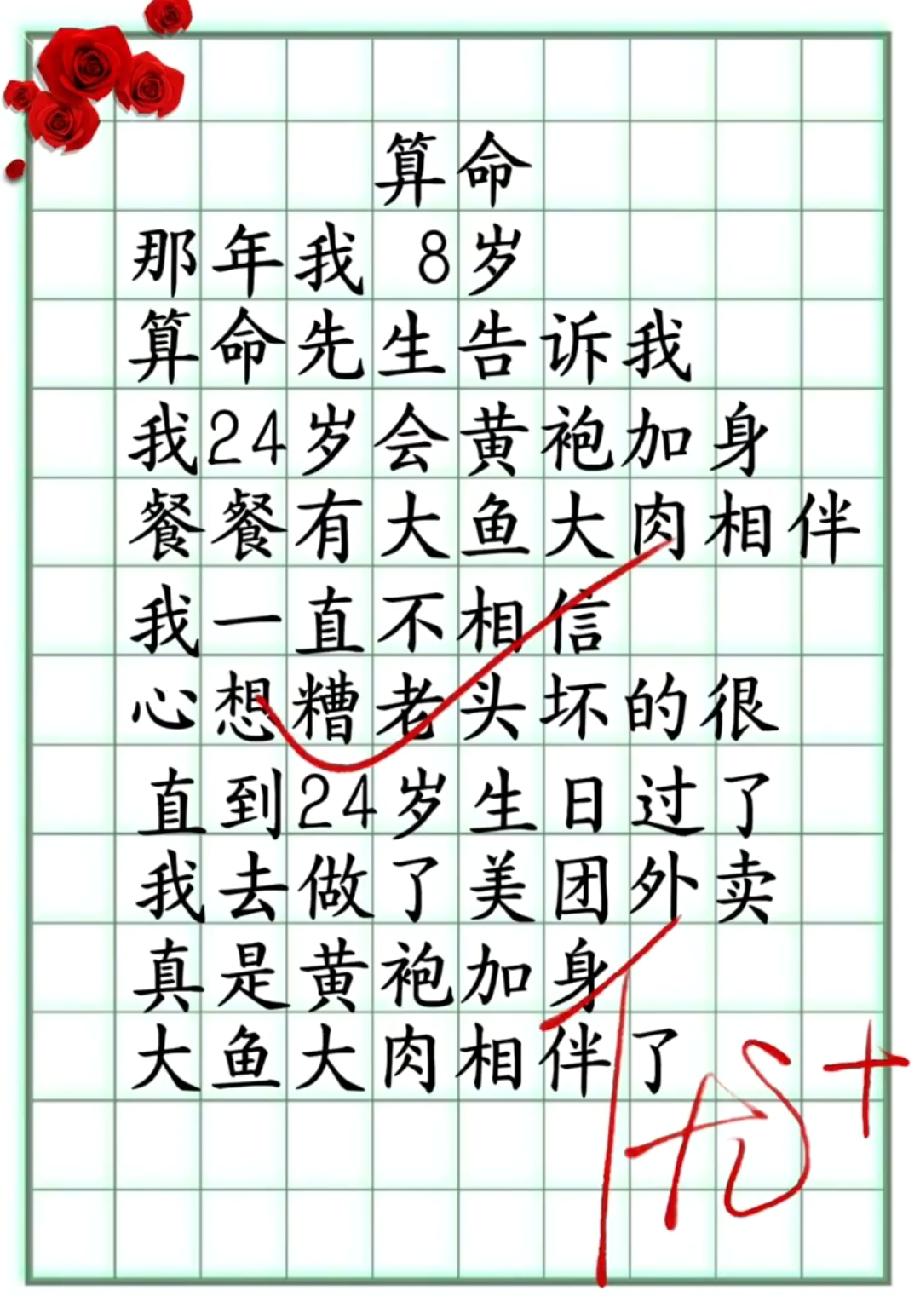 算命
那年我 8岁
算命先生告诉我
我24岁会黄袍加身
餐餐有大鱼大肉相伴
我一直不相信
心想糟老头坏的很
直到24岁生日过了
我去做了美团外卖
真是黄袍加身
大鱼大肉相伴了
优+